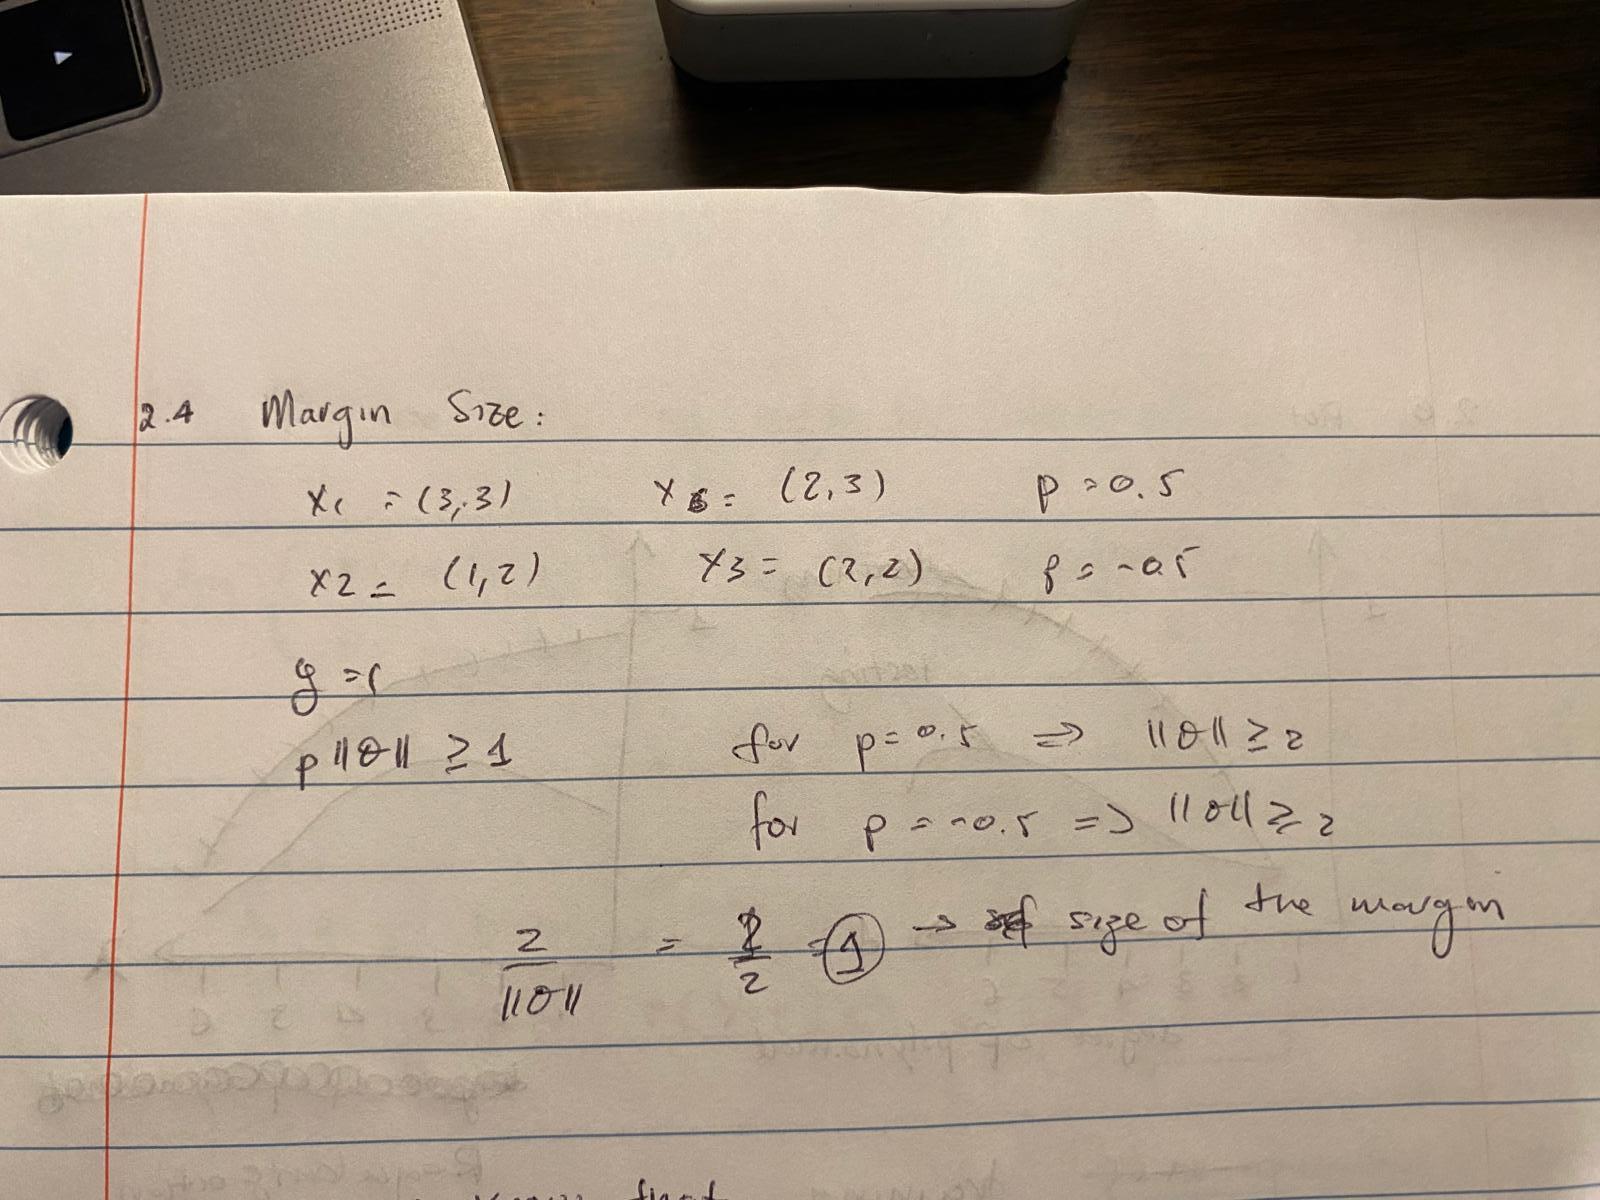 2.4 Margin Size:
x1 = (3,3) x6 = (2,3) p = 0.5
x2 = (1,2) x3 = (2,2) p = -0.5
y = 1
p ||θ|| ≥ 1 for p = 0.5 ⇒ ||θ|| ≥ 2
for p = -0.5 => ||θ|| ≥ 2
2/||θ|| = 2/2 = 1 → size of the margin
that